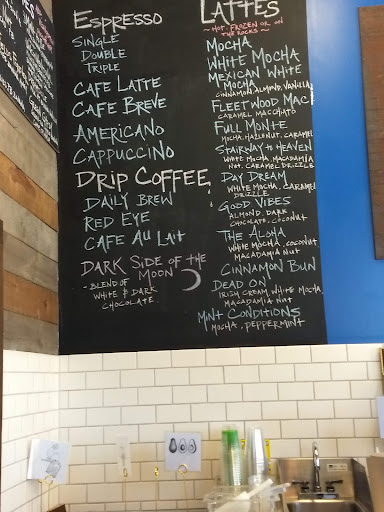 ESPRESSO
SINGLE
DOUBLE
TRIPLE
CAFE LATTE
CAFE BREVE
AMERICANO
CAPPUCCINO
DRIP COFFEE
DAILY BREW
RED EYE
CAFE AU LAIT
DARK SIDE OF THE
MOON
- BLEND OF
WHITE & DARK
CHOCOLATE
LATTES
~ HOT, FROZEN OR ON
THE ROCKS ~
MOCHA
WHITE MOCHA
MEXICAN WHITE
MOCHA
CINNAMON, ALMOND, VANILLA
FLEETWOOD MAC
CARAMEL MACCHIATO
FULL MONTE
MOCHA, HAZELNUT, CARAMEL
STAIRWAY TO HEAVEN
WHITE MOCHA, MACADAMIA
NUT, CARAMEL DRIZZLE
DAY DREAM
WHITE MOCHA, CARAMEL
DRIZZLE
GOOD VIBES
ALMOND, DARK
CHOCOLATE, COCONUT
THE ALOHA
WHITE MOCHA, COCONUT
MACADAMIA NUT
CINNAMON BUN
DEAD ON
IRISH CREAM, WHITE MOCHA,
MACADAMIA NUT
MINT CONDITIONS
MOCHA, PEPPERMINT